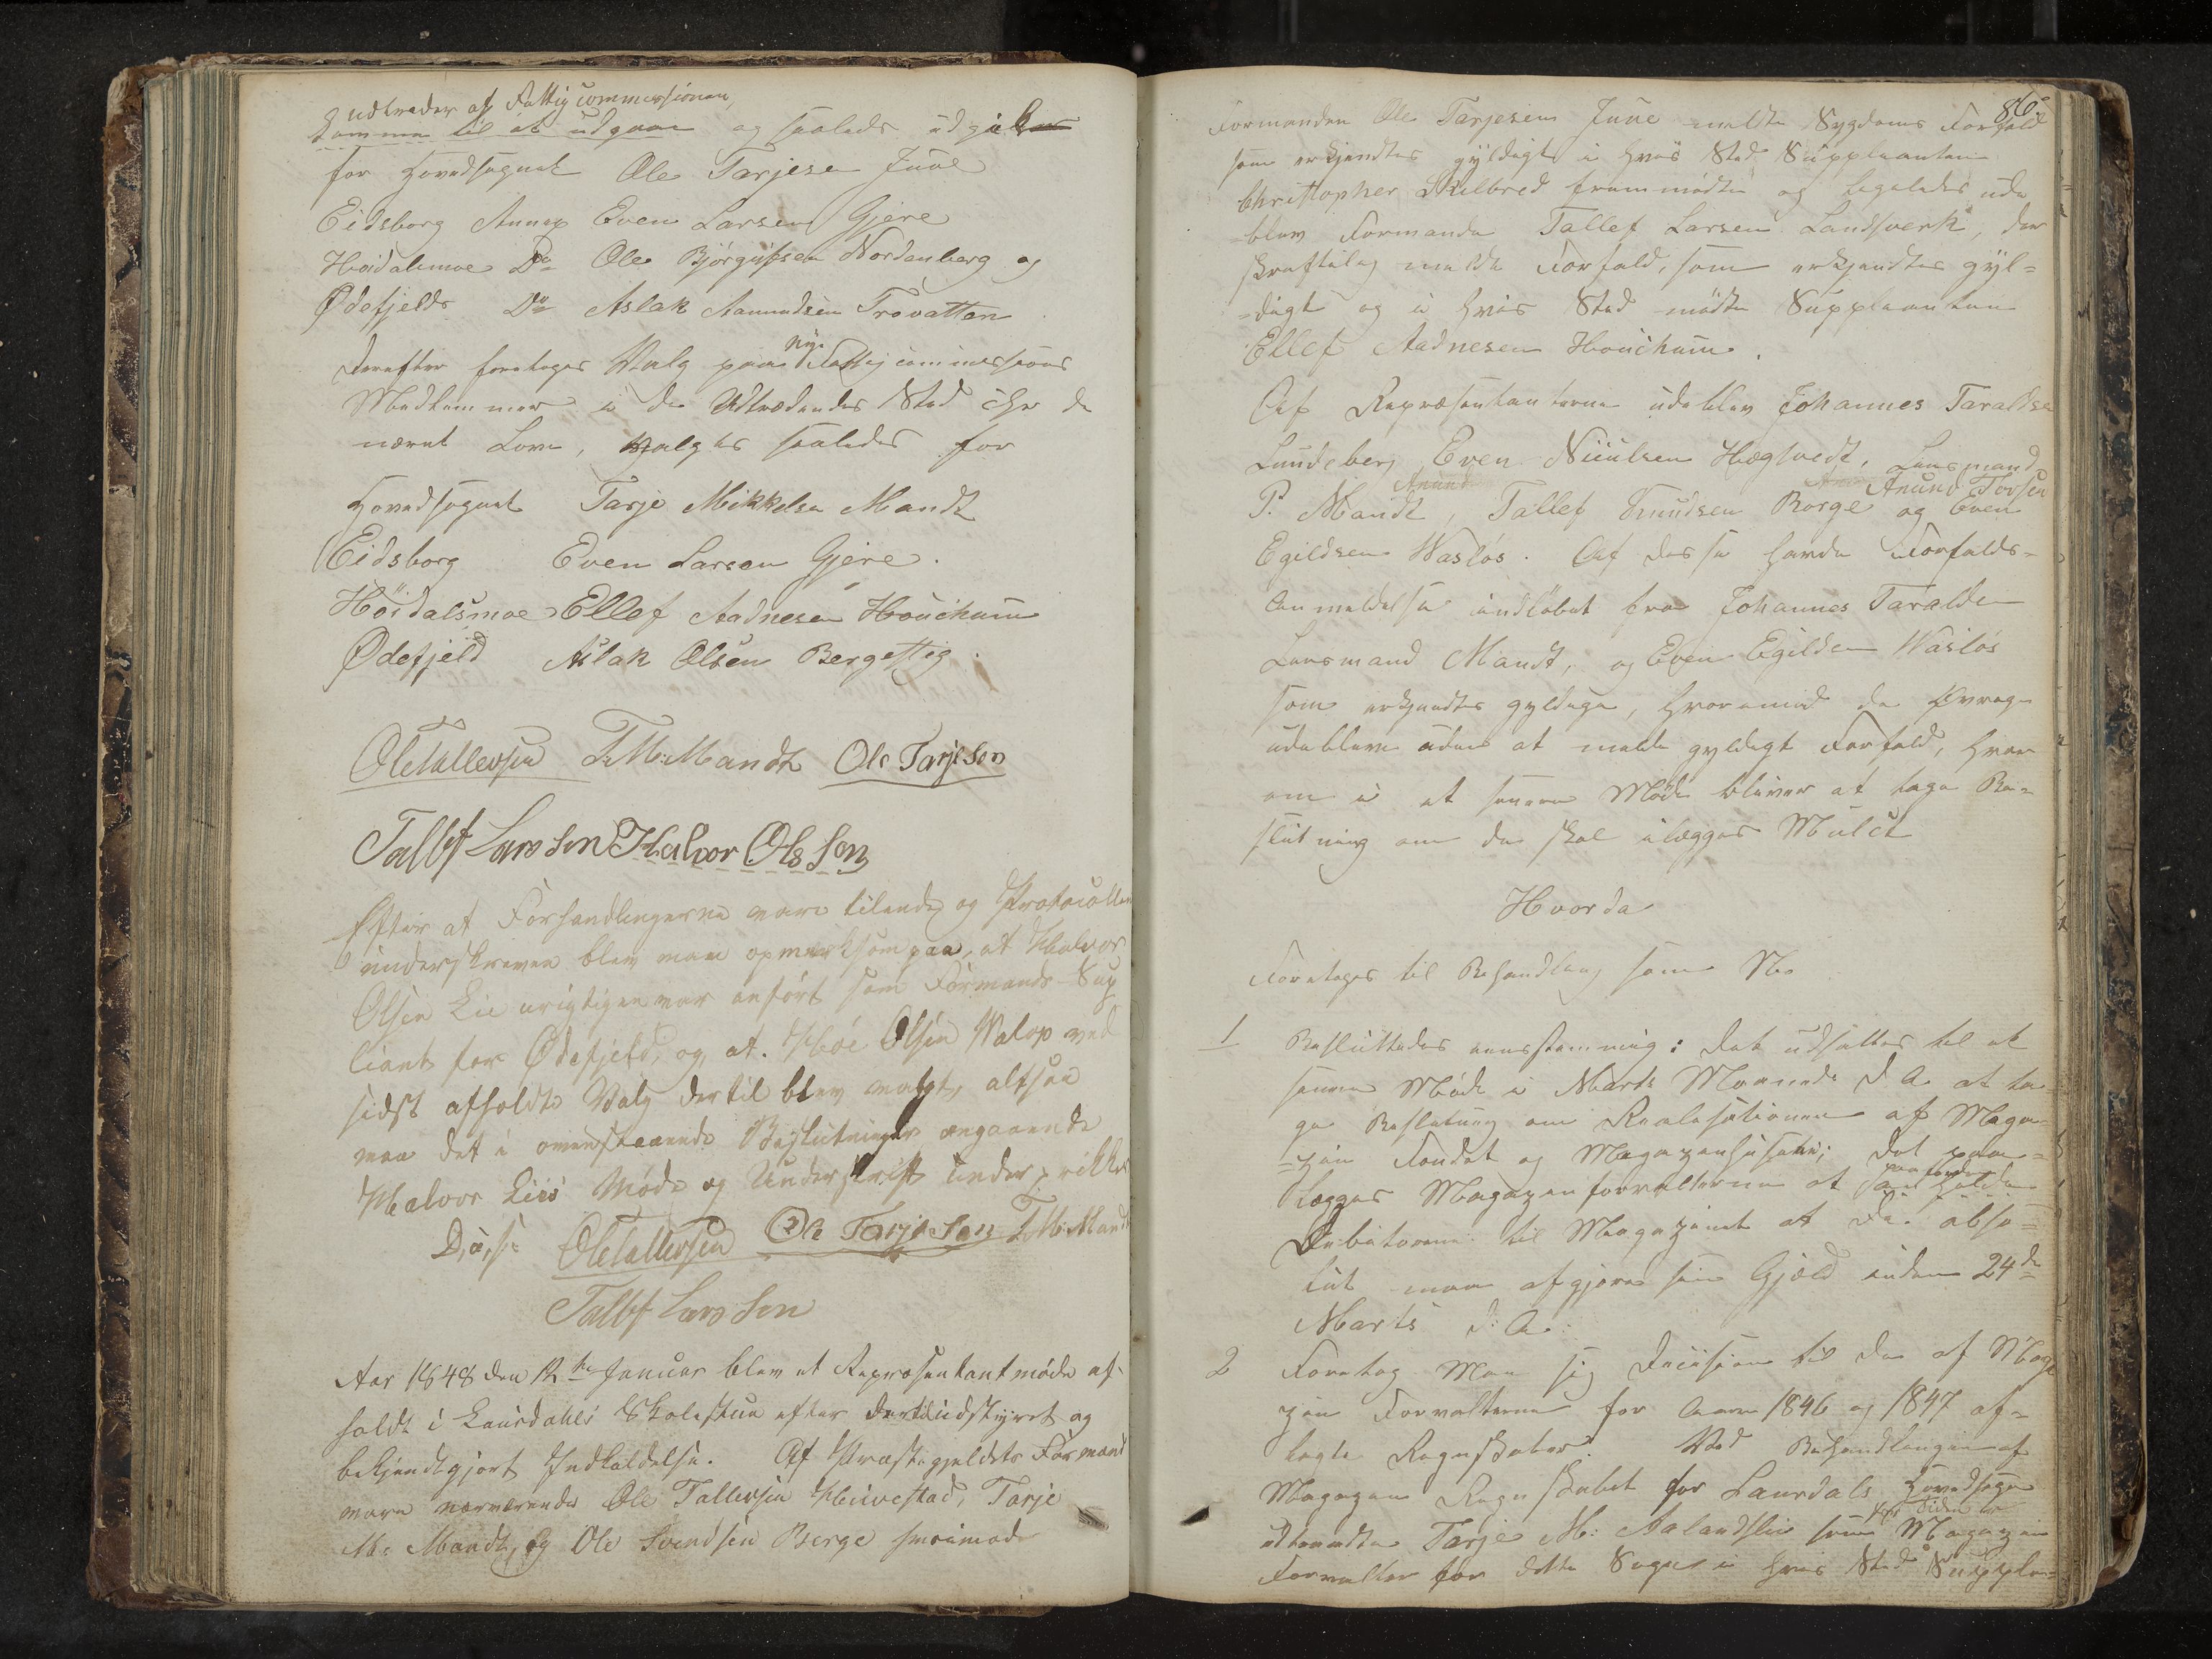 udtræder af Fattigcommissionen,
komme til at udgaae og saaledes udgik
for Hovedsognet Ole Tarjesen Juve
Eidsborg Annex Even Larsen Gjere
Høidalsmoe Do Ole Bjørgufsen Nordenberg og
Ødefjelds Do Aslak Aamundsen Trovatten
Derefter foretoges Valg paa nye Fattigcommissions
Medlemmer i de Udtrædendes Sted efter de
nævnt Lov, valgtes saaledes for
Hovedsognet Tarje Mikkelsen Mandt
Eidsborg Even Larsen Gjere.
Höidalsmoe Ellef Aadnesen Houchum
Ødefjeld Aslak Olsen Bergestig.
Ole Tallevsen T. M: Mandt Ole Tarjeson
Tallef Larsson Halvor Olsson
Efter at Forhandlingerne vare tilende og Protocollen
underskreven blev man opmerksom paa, at Halvor
Olsen Lie urigtigen var anført som Formands-Sup
liant for Ødefjeld, og at Olsen Valop ved
sidst afholdte Valg dertil blev valgt, altsaa
maa det i ovenstaaende Beslutninger angaaende
Halvor Lies Møde og Underskrift underprikkes
D, u, s: Ole Tallevsen Ole Tarjeson T. M: Mandt
Tallef Larsson
Aar 1848 den 12te Januar blev et Repræsentantmøde af-
holdt i Laurdahls Skolestue efter dertil udstyret og
bekjendtgjort Indkaldelse. Af Præstegjeldets Formænd
vare nærværende Ole Tallevsen Heivestad, Tarje
M: Mandt, og Ole Svendsen Berge hvorimod
86.
Formanden Ole Tarjesen Juve meldte Sygdoms Forfald
som erkjendtes gyldigt i hvis Sted Suppleanten
Christopher Skelbred fremmødte og ligeledes ude
blev Formanden Tallef Larsen Landsverk, der
skriftelig meldte Forfald, som erkjendtes gyl=
=digt og i hvis Sted mødte Suppleanten
Ellef Aadnesen Houchum.
Af Repræsentanterne udeblev Johannes Taraldsen
Lundeberg Even Niculsen Hægtvedt, Lensmand
Anund Torsen
P. Mandt, Tallef Knudsen Borge og Even
Egildsen Wasløs. Af disse havde Forfalds-
Anmeldelse indløbet fra Johannes Taralds
Lensmand Mandt, og Even Egildsen Wasløs
som erkjendtes gyldige, hvorimod de Øvrige
udebleve uden at melde gyldigt Forfald, hvor
om i et senere Møde bliver at tage Be=
slutning om de skal ilægges Mulct
Hvorda
Foretoges til Behandling som No
1 Besluttedes eensstemmig: Det udsættes til et
senere Møde i Marts Maaned d. A. at ta
ge Beslutning om Realisationen af Maga-
=zin Fondet og Magazinhusene; det paa=
lægges Magazinforvalterne at paafordre
Debitorerne til Magazinet at de abso=
lut maa afgjøre sin Gjæld inden 24de
Marts d: A:
2 Foretog Man sig Decision til de af Maga
zin Forvalterne for Aarene 1846 og 1847 af=
lagte Regnskaber. Ved Behandlingen af
Magazin Regnskabet for Laurdals Hovedsogn
udtraadte Tarje M: Aalandslie som Magazin
Forvalter for dette Sogn i hvis Sted Supple=